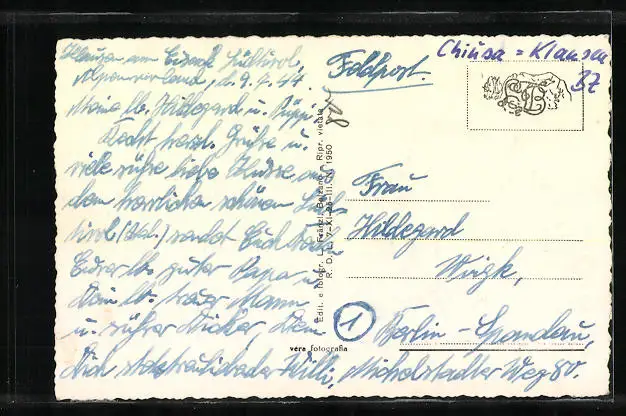 Klausen am Eisack Südtirol,
Alpenvorland, d. 9.4.44.
Meine lb. Hildegard u. Puppi
Recht herzl. Grüße u.
viele süße liebe Küsse, aus
dem herrlichen schönen Süd-
tirol (Ital.) sendet Euch
Euer lb. guter Papa u.
Dein lb. treuer Mann
u. süßer Dicker, Dein
Dich Willi,
Feldpost.
Chiusa = Klausen
BZ
Edit. e fotogr. L. Fränzl, Bolzano - Ripr. vietata
vera fotografia
Frau
Hildegard
1
Berlin-Spandau,
Michelstadter Weg 80.